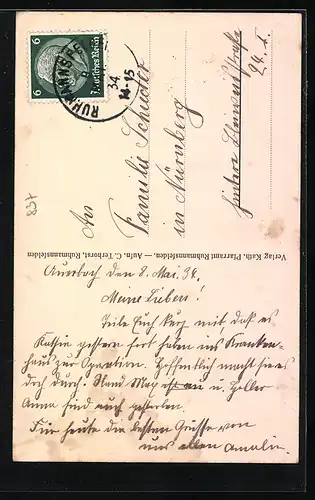 6 Deutsches Reich 6
RUHMANNSF
34
14-15
837
An
Familie Schuster
in Nürnberg
hintere
24. I.
Verlag Kath. Pfarramt Ruhmannsfelden. — Aufn. C. Terhorst, Ruhmannsfelden
Auerbach den 8. Mai. 34.
Meine Lieben!
Teile Euch kurz mit daß es
gestern fort ins Kranken-
haus zur Operation. Hoffentlich macht sie es
doch durch. Max u.
Anna sind auch gestorben.
Für heute die besten Grüsse von
uns allen Amalie.